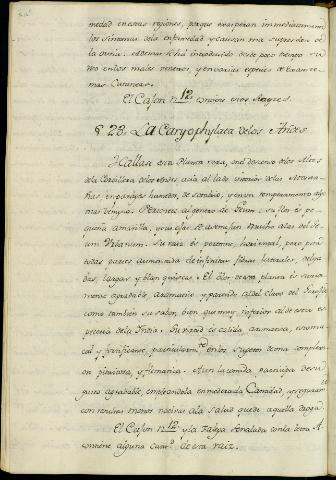 medad en estas regiones, porque exasperan immediatamente
los sintomas de la enfermedad y causan una supresion de
la orina. Ademas se ha introducido desde poco tiempo su
uso en los males venereos, y en varias especies de
mas Cutaneas.
El Caxon n.º 12 contiene esta
§ 23. La Caryophylata de los Andes
Hallase esta Planta rara, en el descenso de los Altos
de la Cordillera de los Andes acia al lado interior de las Montañas,
en parages humedos, de sombrio, y en un temperamento algo
mas templado. Pertenece al genero de Geum: su flor es pequeña
amarilla, y sus ojas se asemejan mucho a las del Geum
Urbanum. Su raiz es perenne, horizontal, pero por
todas partes aumentada de infinitas fibras laterales, delgadas,
largas, y blanquiscas. El olor de esta planta es sumamente
agradable, aromatico y parecido al del Clavo
como tambien su sabor, bien que muy inferior al de esta especeria
de la India. Su raiz es calida, aromatica, stomacal
y fortificante, particularm.te en los sugetos de una complexion
pituitosa, y flematica. A la comida participa de un
gusto agradable, empleandola en moderada Cantidad, y seguram.te
con resultas menos nocivas a la salud que de aquella droga.
El Caxon n.º 12 y la señalada con la letra A
contiene alguna cant.d de esta raiz.